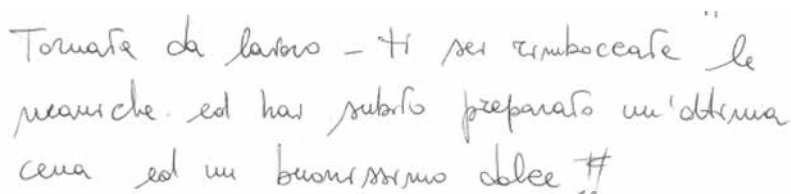 Tornata da lavoro - ti sei rimboccata le
maniche. ed hai subito preparato un'ottima
cena ed un buonissimo dolce #